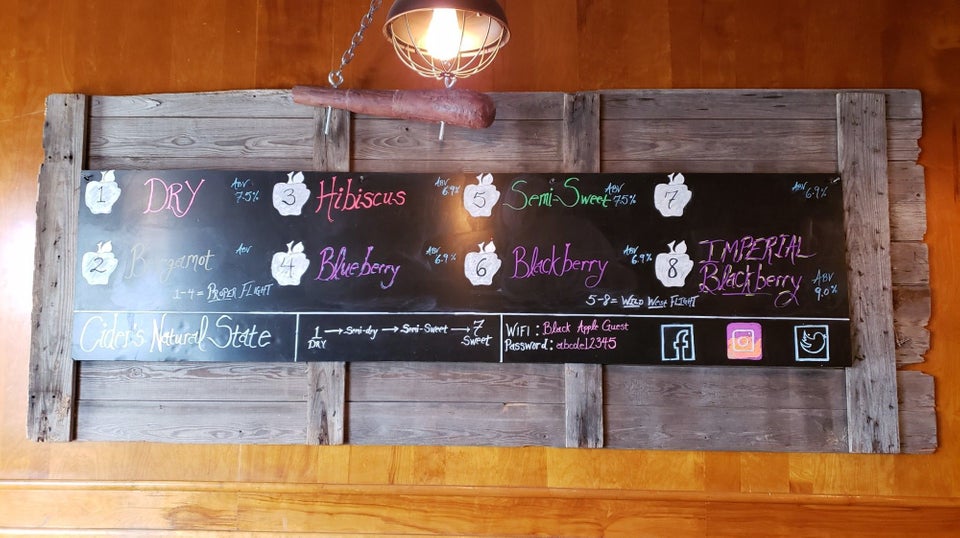 1 DRY ABV 7.5%
3 Hibiscus ABV 6.9%
5 Semi-Sweet ABV 7.5%
7 ABV 6.9%
2 Bergamot ABV
4 Blueberry ABV 6.9%
6 Blackberry ABV 6.9%
8 IMPERIAL
Blackberry ABV 9.0%
1-4 = PROPER FLIGHT
5-8 = WILD West FLIGHT
Cider's Natural State
1 → Semi-dry → Semi-Sweet → 7
DRY Sweet
WiFi: Black Apple Guest
Password: abcde12345
f